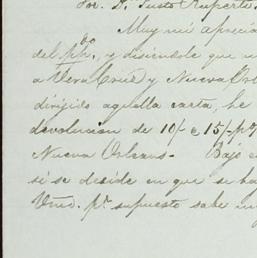 Sor. Dn. Justo Ruperto
Muy mío aprecia
del pp.do, y diciéndole que u
a Vera Cruz y Nueva Or
dirigido aquella carta, he
devolucion de 10/- a 15/- p
Nueva Orleans - Bajo e
si se decide en que se ha
Vmd. pr. supuesto sabe